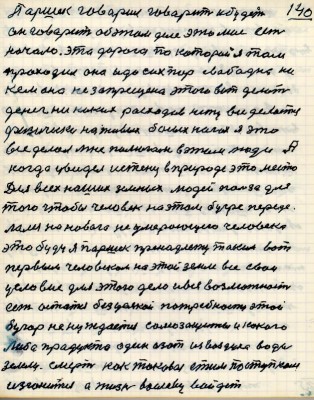 140
Паршек говорил говорит и будет
он говорить об этом деле это мое есть
начало. Эта дорога по которой я там
проходил она и до сих пор свободна ни
кем она не запрещена этого вот делать
денег ни каких расходов нету все делается
физически на живых больных людях я это
все делал мне помогали в этом люди Я
когда увидел истену в природе это место
Для всех наших земных людей польза для
того чтобы человек на этом бугре переде
лался на нового не умирающего человека
это буду я паршек принадлежу таким вот
первым человеком на этой земле все свои
условие для этого дело и все возможности
есть остался без всякой потребности этой
бугор не нуждается самозащиты и какого
либо продукта один азот из воздуха вода
земля. смерть как таковая этим поступком
изгонится а жизнь вовеки войдет